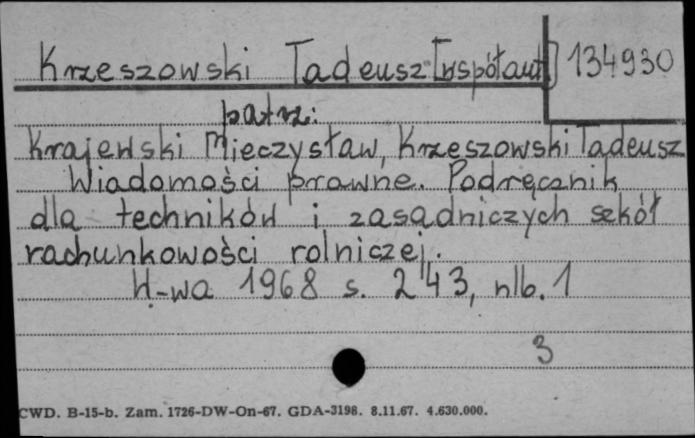 Krzeszowski Tadeusz [współaut] 134930
patrz:
Krajewski Mieczysław, Krzeszowski Tadeusz
Wiadomości prawne. Podręcznik
dla techników i zasadniczych szkół
rachunkowości rolniczej.
W-wa 1968 s. 243, nlb. 1
3
CWD. B-15-b. Zam. 1726-DW-On-67. GDA-3198. 8.11.67. 4.630.000.